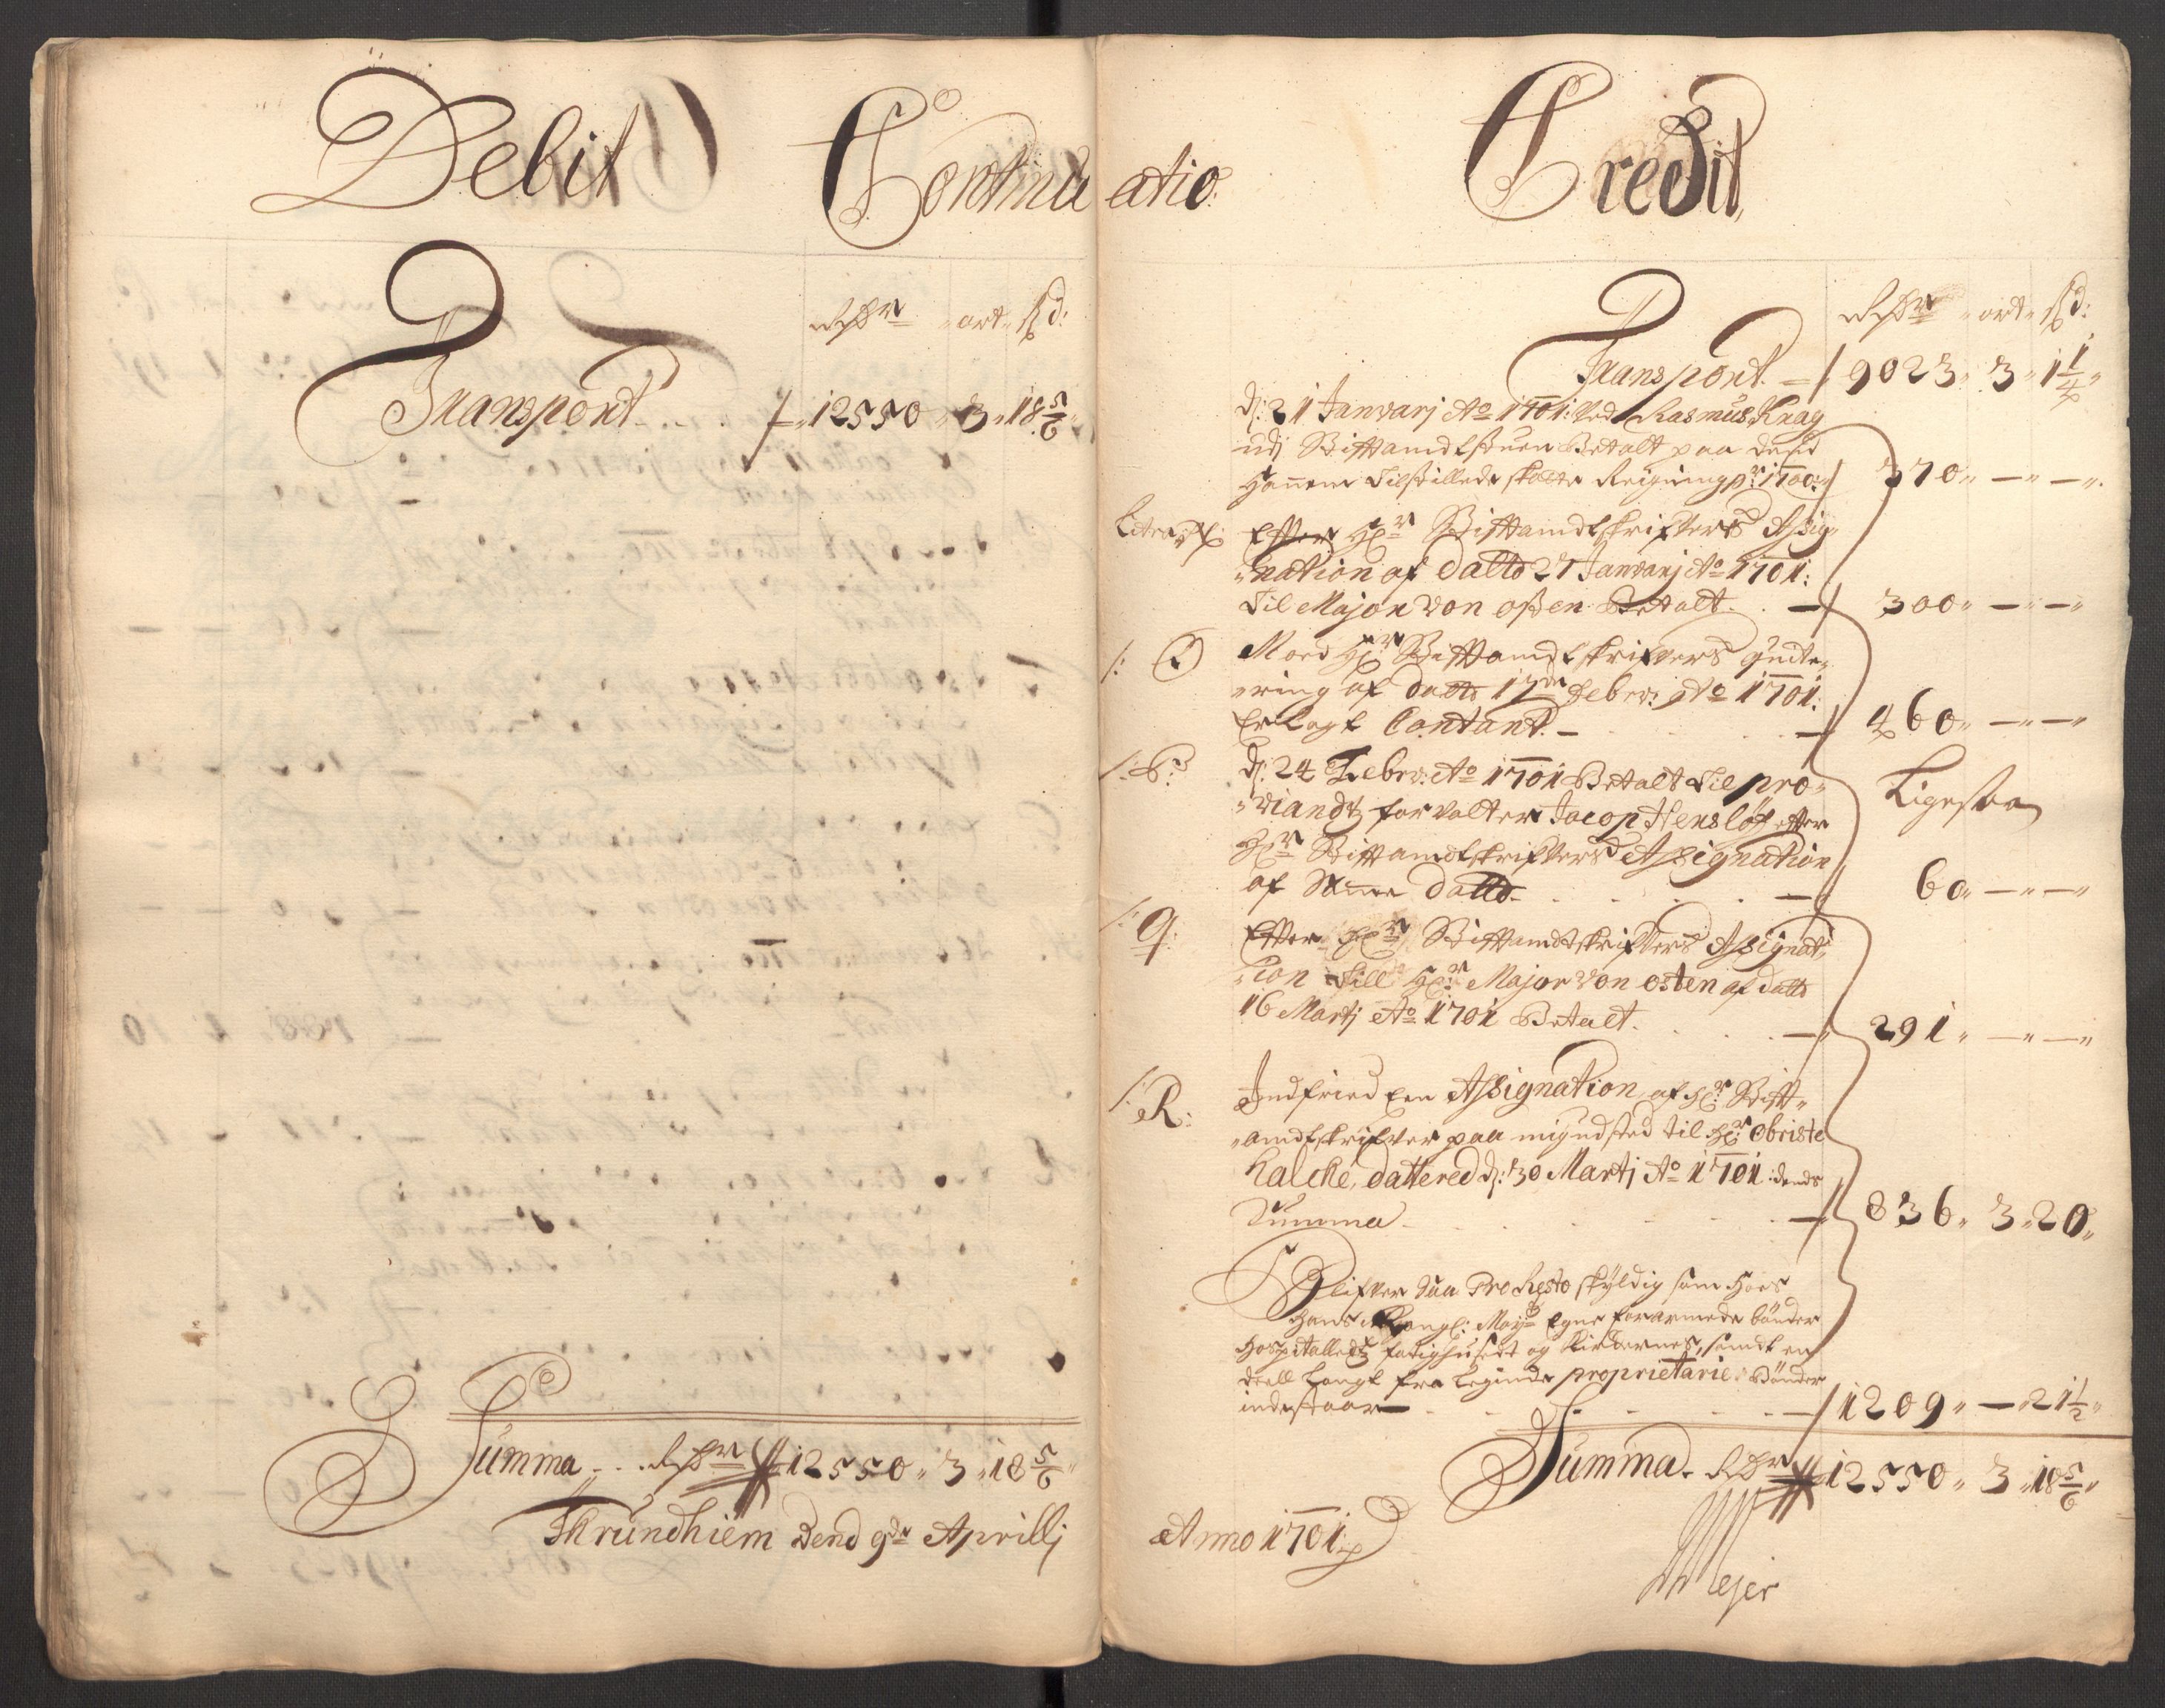 Debit Continu atio. Credit
Rdr ort ß d:
Transport . . . 12550 „ 3 „ 18 5/6
Summa . . Rdr 12550 „ 3 „ 18 5/6
Thrundhiem Dend 9de Aprillj
Rdr ort ß d:
Transport. – 9023 „ 3 „ 1 1/4
d: 21 Janvarj Ao 1701: Ved Rasmus Kaag
udj Stiftamdtstuen Betalt paa
Hannem Tilstillede Reigning pr: 1700: 370 „ — „ — „
Litra Efter Hr: Stiftamdtskrifvers Assig„
„nation af datto 27 Janvarj Ao 1701:
Til Major Von osten Betalt. . 300 „ — „ —
/: O Moed Hr: Stiftamdtskrifvers Qvite„
„ring af datto 17de Febr: Ao 1701:
Erlagt Contant. – 460 „ — „ —
/: P: d: 24 Febr: Ao 1701 Betalt Til pro„
„viandt forvalter Jacop Hensløf efter
Hr: Stiftamdtskrifvers Assignation
af Samme datto. 60 „ — „ —
Ligesaa
/: Q: Efter Hr: Stiftamdtskrifvers Assignat„
„ion Till Hr: Major Von osten af datto
16 Martj Ao 1701 Betalt. 291 „ — „ —
/: R: Indfried Een Assignation af Hr: Stift„
„amdtskrifver paa mig udsted til Hr: Obriste
Kalcke, dattered d: 30 Martj Ao 1701: dends
Summa 836 „ 3 „ 20 „
Blifver Saa Pro Resto skyldig som Hoes
Hans Kongl: May: Egne forarmede bønder
Hospitalletz fatighused og Kirkernes, samdt en
deell Langt fra Leginde proprietarie Bønder
indestaar 1209 „ — „ 21 1/2 „
Summa. Rdr 12550 „ 3 „ 18 5/6 „
Anno 1701
Mejer